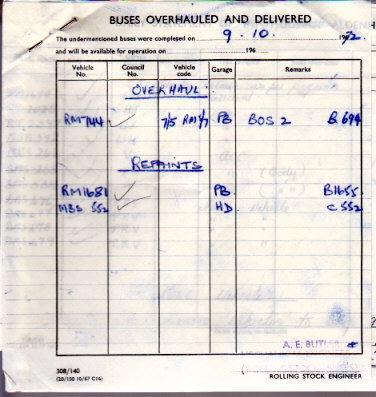 BUSES OVERHAULED AND DELIVERED
The undermentioned buses were completed on 9. 10. 1972.
and will be available for operation on 196
Vehicle No. Council No. Vehicle code Garage Remarks
OVERHAUL
RM744 ✓ 7/5 RM1/7 PB BOS 2 B 694
REPAINTS
RM1681 ✓ PB. B1655.
MBS 552 ✓ HD. C 552
A. E. BUTLER
308/140
(20/150 10/67 C16)
ROLLING STOCK ENGINEER